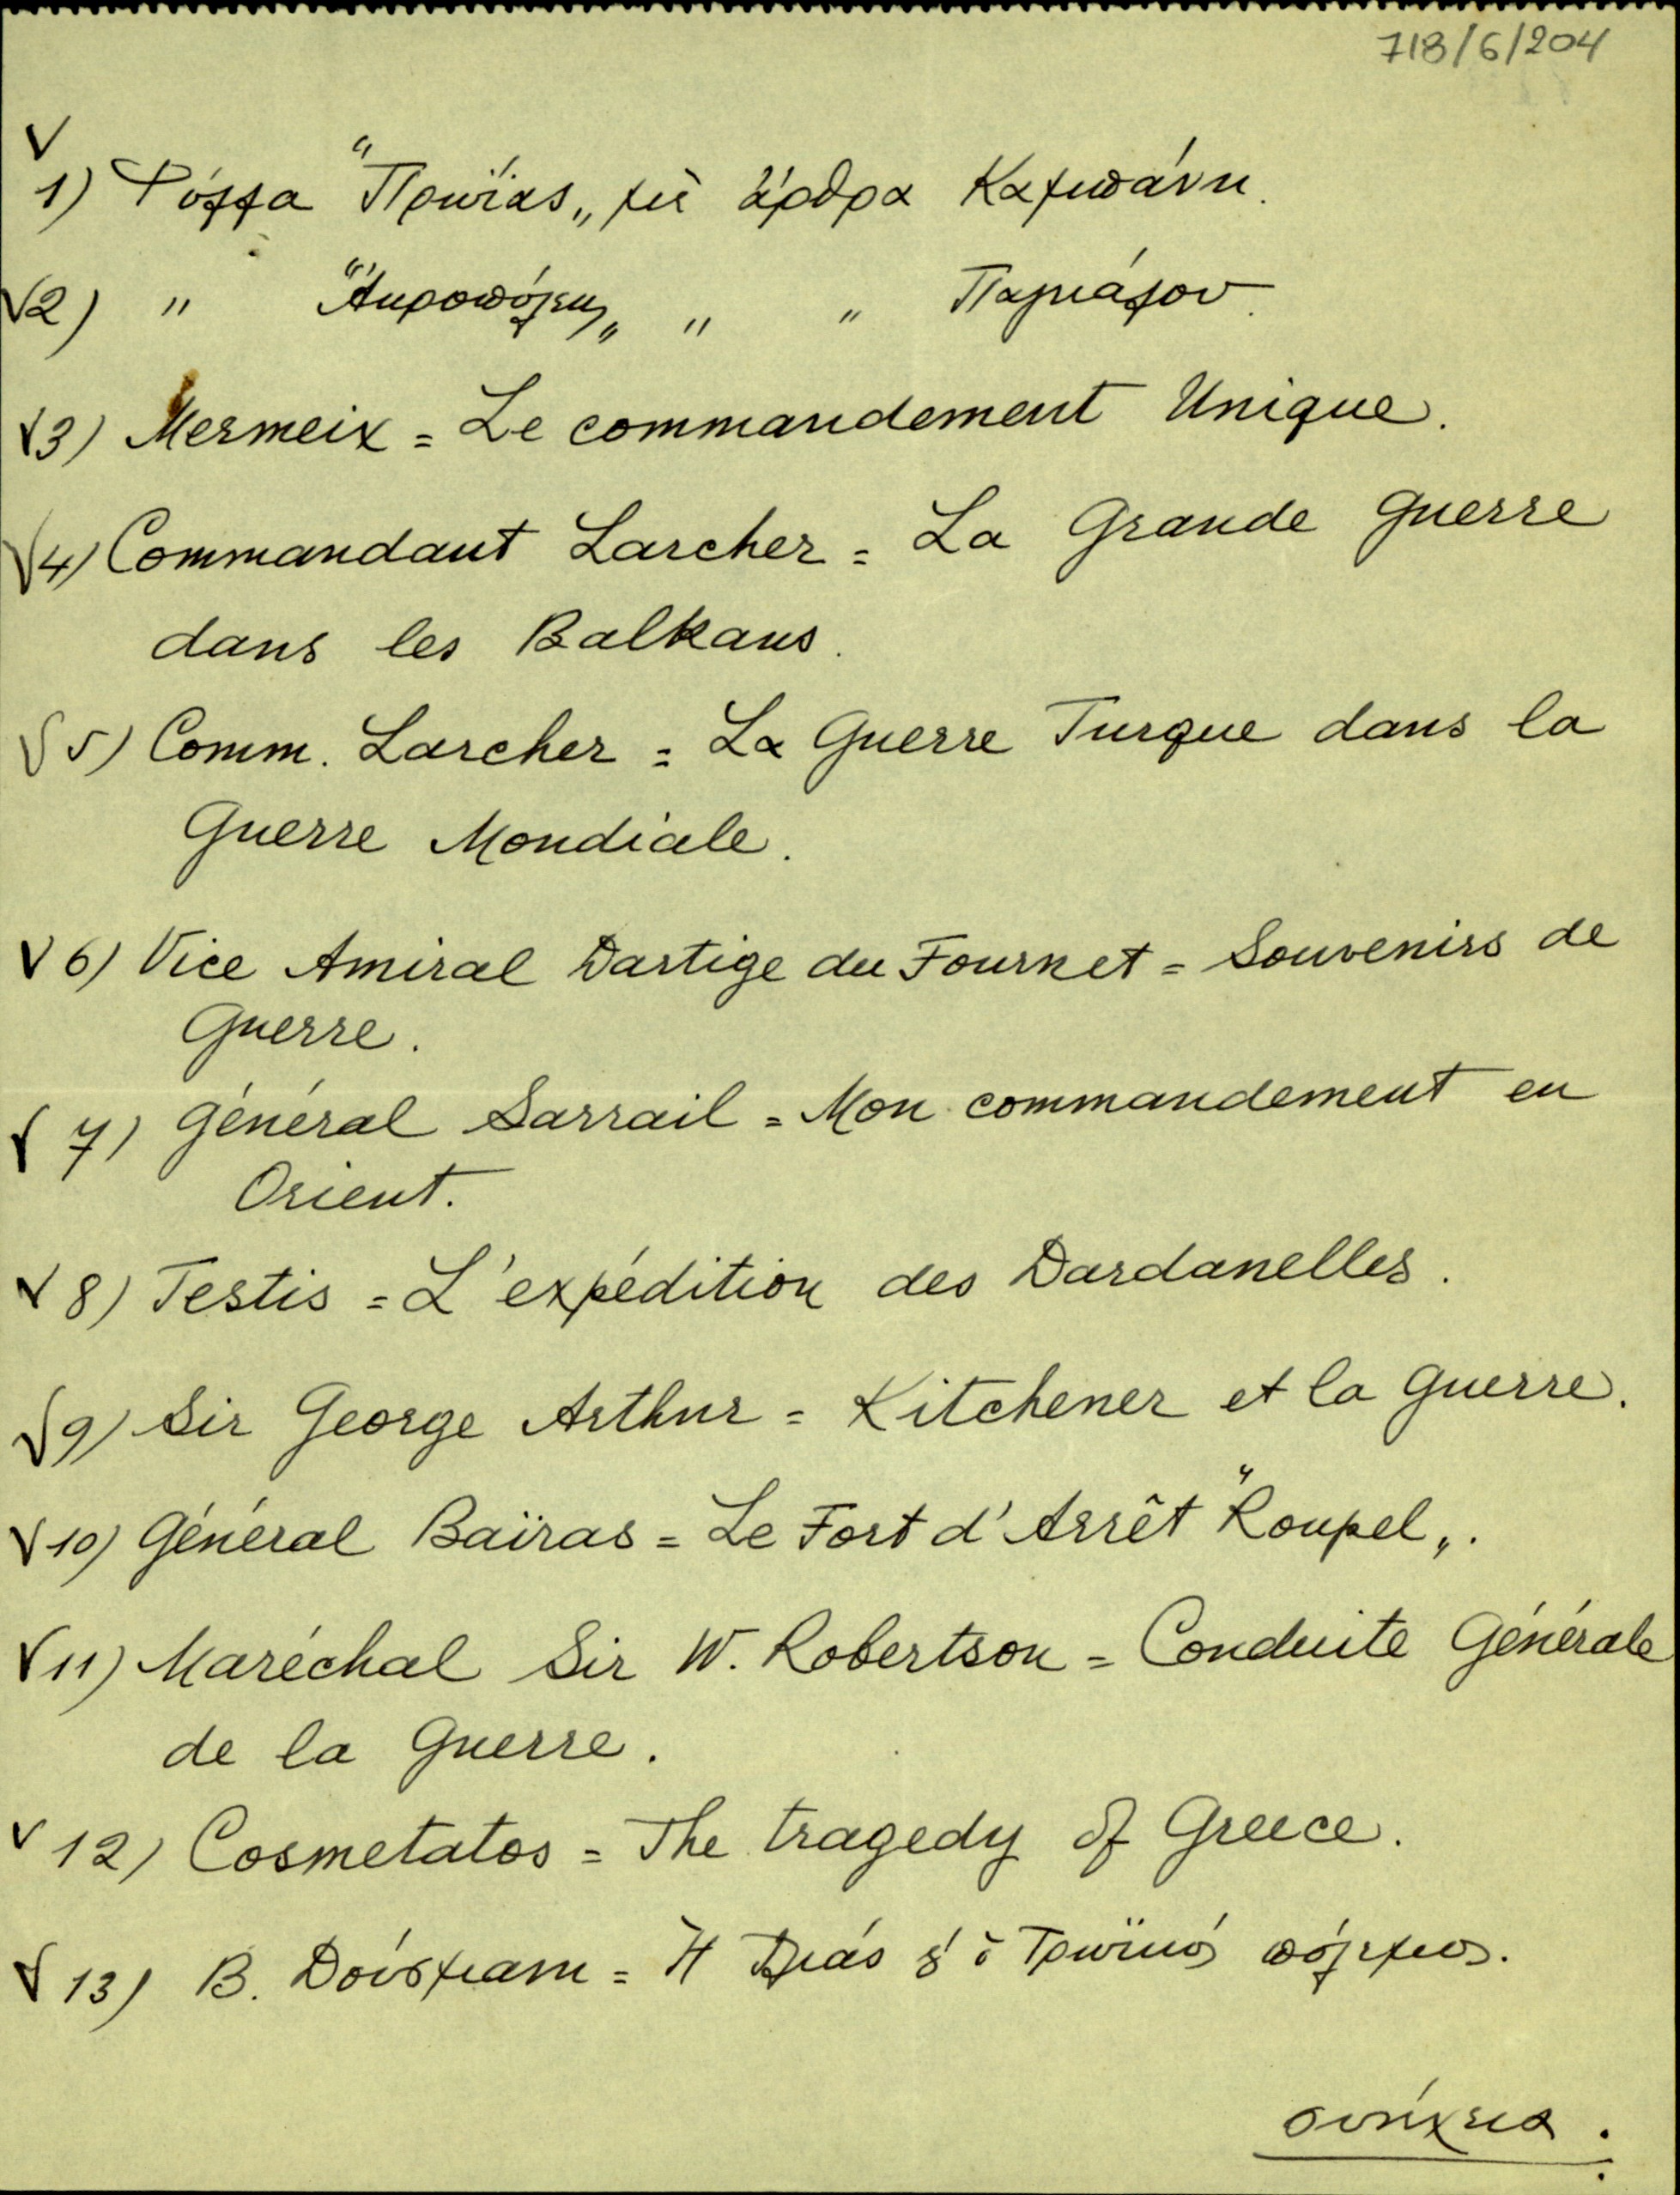 718/6/204
1) Φύλλα "Πρωΐας„ μὲ ἄρθρα Καμπάνη.
2) " "Ἀκροπόλεως„ " "
3) Mermeix = Le commandement Unique.
4) Commandant Larcher = La Grande guerre
dans les Balkans.
5) Comm. Larcher = La Guerre Turque dans la
Guerre Mondiale.
6) Vice Amiral Dartige du Fournet = Souvenirs de
Guerre.
7) Général Sarrail = Mon commandement en
Orient.
8) Testis = L'expédition des Dardanelles.
9) Sir George Arthur = Kitchener et la guerre.
10) Général Baïras = Le Fort d'Arrêt "Roupel„.
11) Maréchal Sir W. Robertson = Conduite Générale
de la Guerre.
12) Cosmetatos = The tragedy of Greece.
13) Β. Δούσμανη = Ἡ Ἰλιάς & ὁ Τρωϊκός πόλεμος.
συνέχεια.